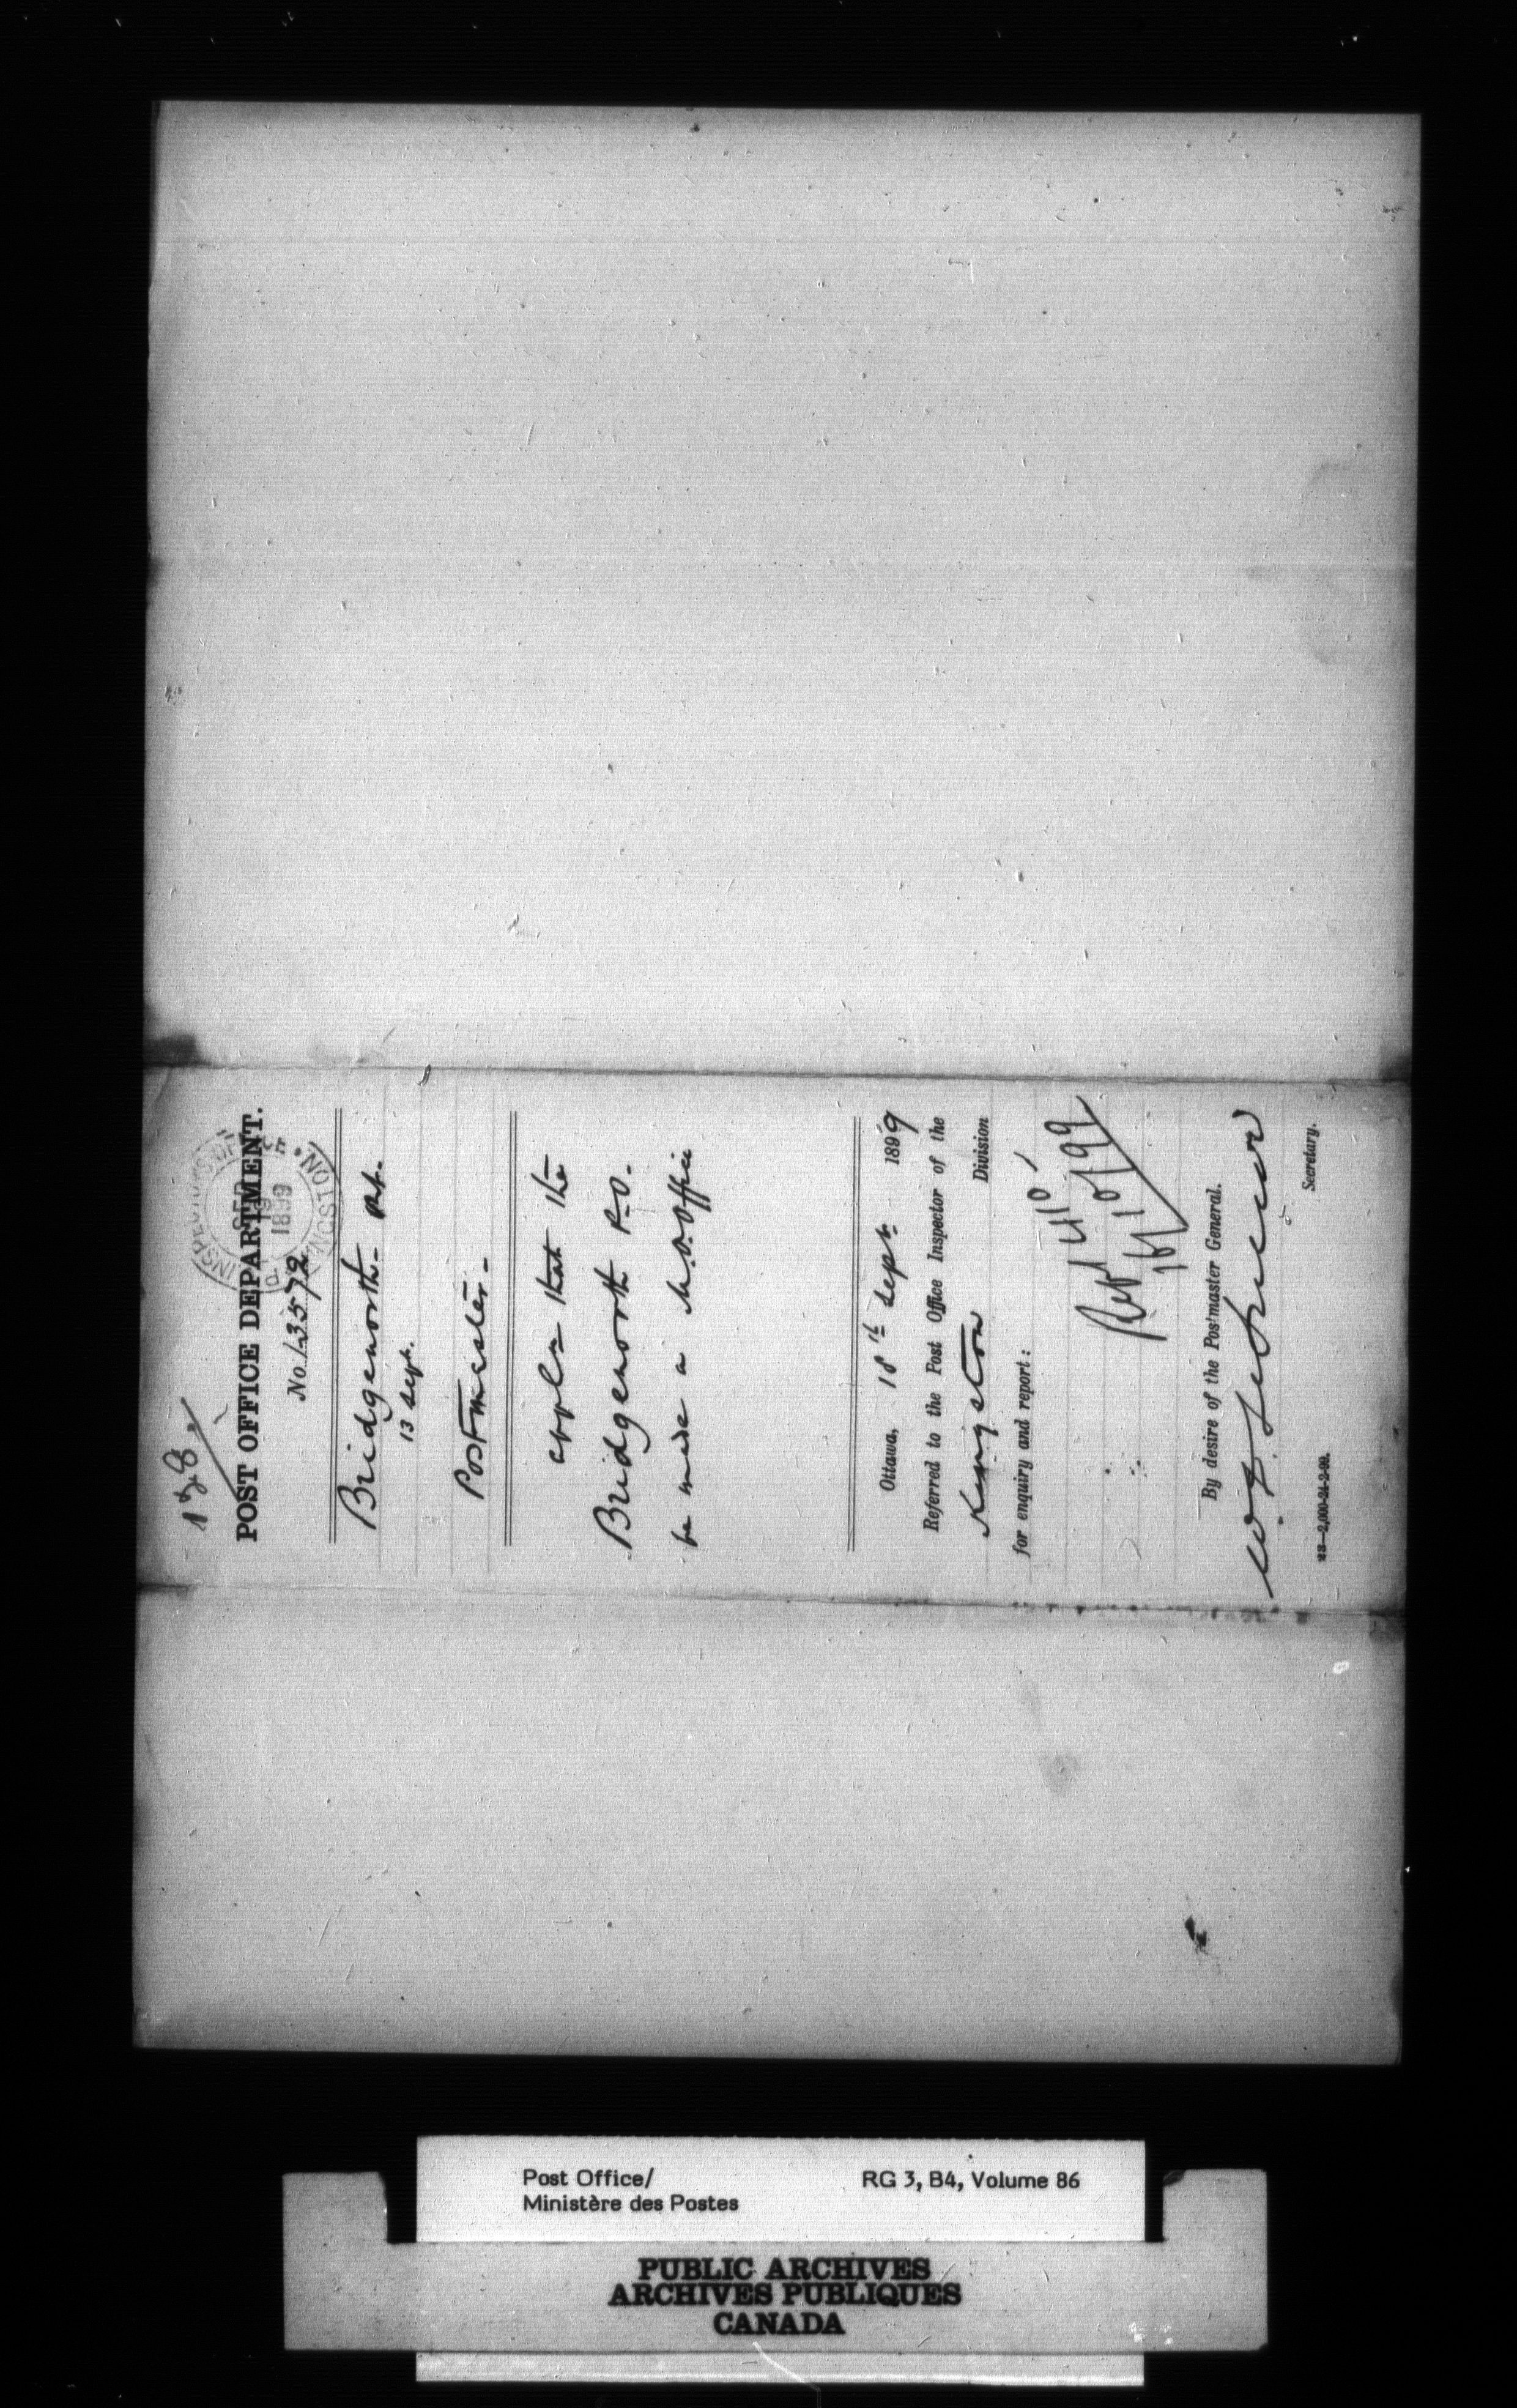 128
POST OFFICE DEPARTMENT.
INSPECTOR'S OFFICE
SEP 19 1899
KINGSTON
No. 13572
Bridgenorth - Ont.
13 Sept.
Postmaster -
appln that the
Bridgenorth P.O.
be made a M.O. Office
Ottawa, 18th Sept. 1899
Referred to the Post Office Inspector of the
Kingston Division
for enquiry and report:
By desire of the Postmaster General.
Secretary.
Post Office/
Ministère des Postes
RG 3, B4, Volume 86
PUBLIC ARCHIVES
ARCHIVES PUBLIQUES
CANADA